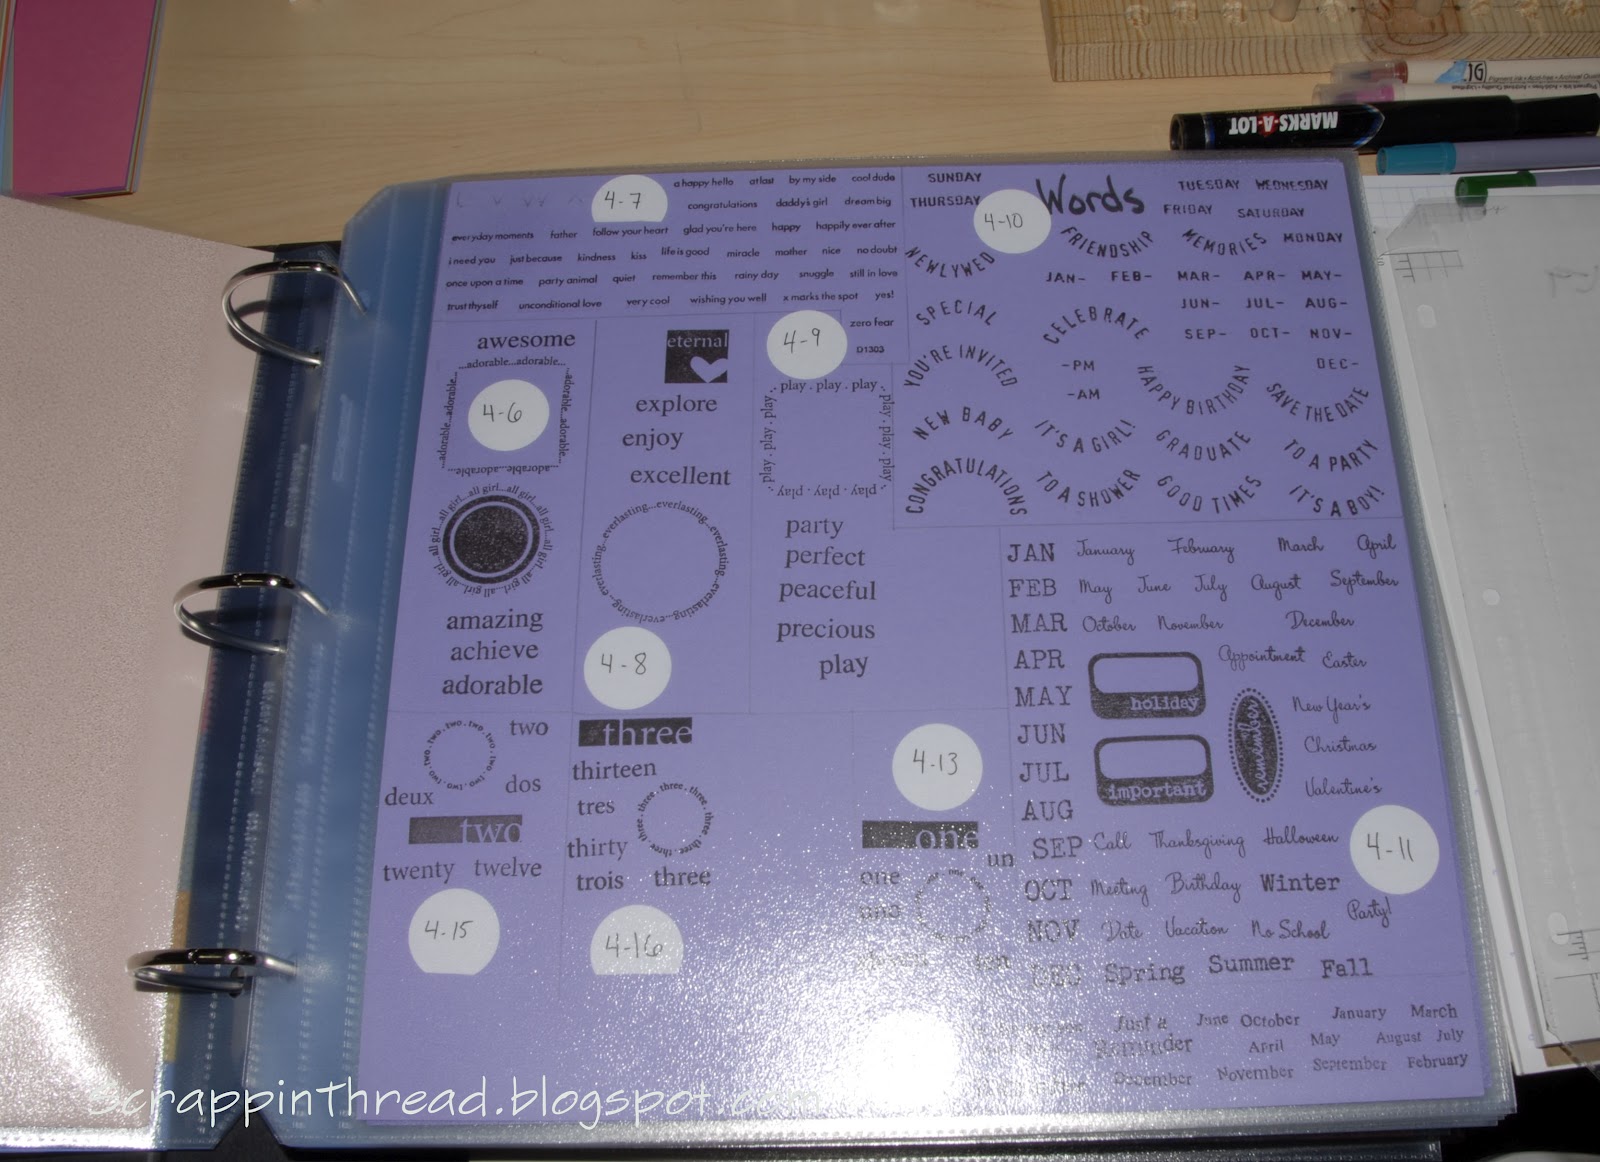 MARKS-A-LOT
4-7
a happy hello at last by my side cool dude
congratulations daddy's girl dream big
everyday moments father follow your heart glad you're here happy happily ever after
i need you just because kindness kiss life is good miracle mother nice no doubt
once upon a time party animal quiet remember this rainy day snuggle still in love
trust thyself unconditional love very cool wishing you well x marks the spot yes!
zero fear
D1303
Words
4-10
SUNDAY TUESDAY WEDNESDAY
THURSDAY FRIDAY SATURDAY
MONDAY
NEWLYWED FRIENDSHIP MEMORIES
JAN- FEB- MAR- APR- MAY-
JUN- JUL- AUG-
SEP- OCT- NOV-
DEC-
SPECIAL CELEBRATE
YOU'RE INVITED
-PM
-AM
HAPPY BIRTHDAY SAVE THE DATE
NEW BABY IT'S A GIRL! GRADUATE TO A PARTY
CONGRATULATIONS TO A SHOWER GOOD TIMES IT'S A BOY!
awesome
...adorable...adorable...
...adorable...adorable...
...adorable...adorable...
...adorable...adorable...
4-6
all girl...all girl...all girl...all girl...all girl...all girl...
amazing
achieve
adorable
eternal
explore
enjoy
excellent
everlasting...everlasting...everlasting...everlasting...everlasting...
4-8
4-9
play . play . play
play . play . play
play . play . play
play . play . play
party
perfect
peaceful
precious
play
JAN January February March April
FEB May June July August September
MAR October November December
APR Appointment Easter
MAY holiday remember New Year's
JUN Christmas
JUL important Valentine's
AUG
SEP Call Thanksgiving Halloween
4-11
OCT Meeting Birthday Winter
Party!
NOV Date Vacation No School
DEC Spring Summer Fall
two . two . two . two . two . two . two
two
dos
deux
two
twenty twelve
4-15
three
thirteen
tres
three . three . three . three . three . three
thirty
trois three
4-16
4-13
one
un
one
Just a June October January March
Reminder April May August July
December November September February
scrappinthread.blogspot.com